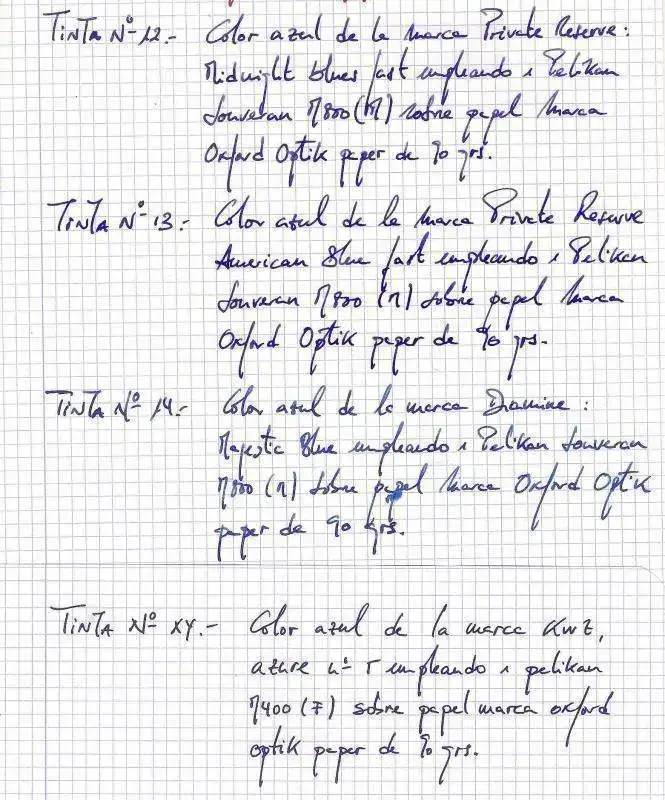 TINTA Nº 12.- Color azul de la marca Private Reserve:
Midnight blues fast empleando 1 Pelikan
Souveran M800 (M) sobre papel marca
Oxford Optik paper de 90 grs.
TINTA Nº 13.- Color azul de la marca Private Reserve
American Blue fast empleando 1 Pelikan
Souveran M800 (M) sobre papel marca
Oxford Optik paper de 90 grs.
TINTA Nº 14.- Color azul de la marca Diamine:
Majestic Blue empleando 1 Pelikan Souveran
M800 (M) sobre papel marca Oxford Optik
paper de 90 grs.
TINTA Nº XY.- Color azul de la marca KWZ,
azure nº 5 empleando 1 pelikan
M400 (F) sobre papel marca oxford
optik paper de 90 grs.